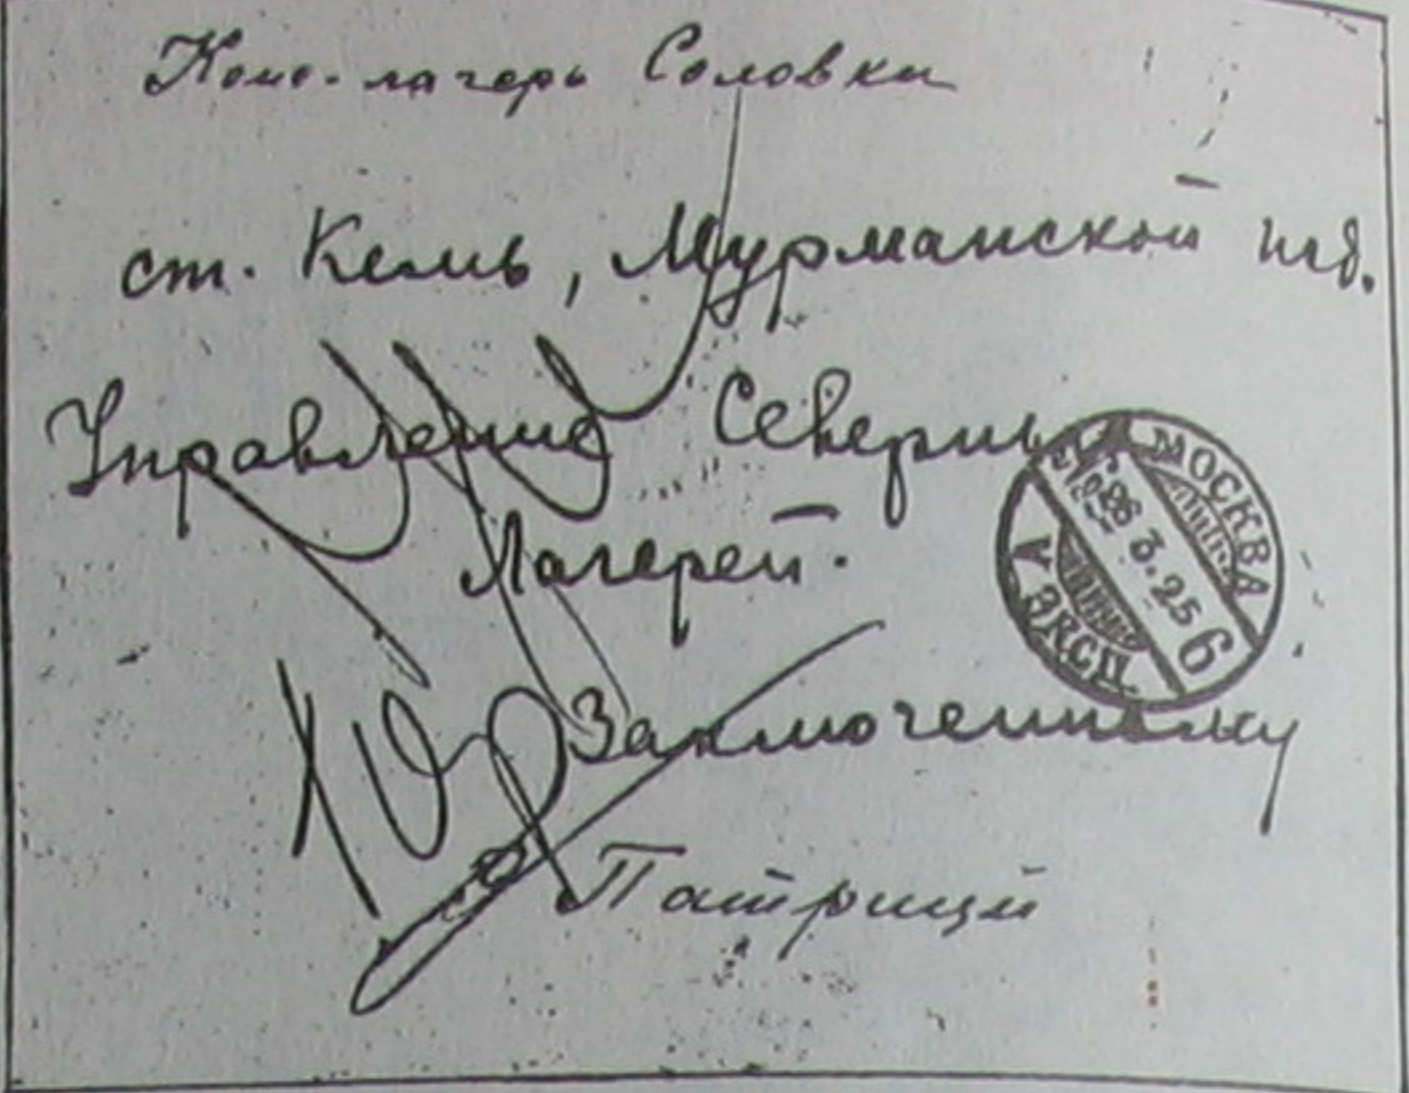 Конс-лагерь Соловки
ст. Кемь, Мурманской жд.
Управление Северных
Лагерей.
МОСКВА
3.25
6
ЭКСП.
Заключенному
Патриций